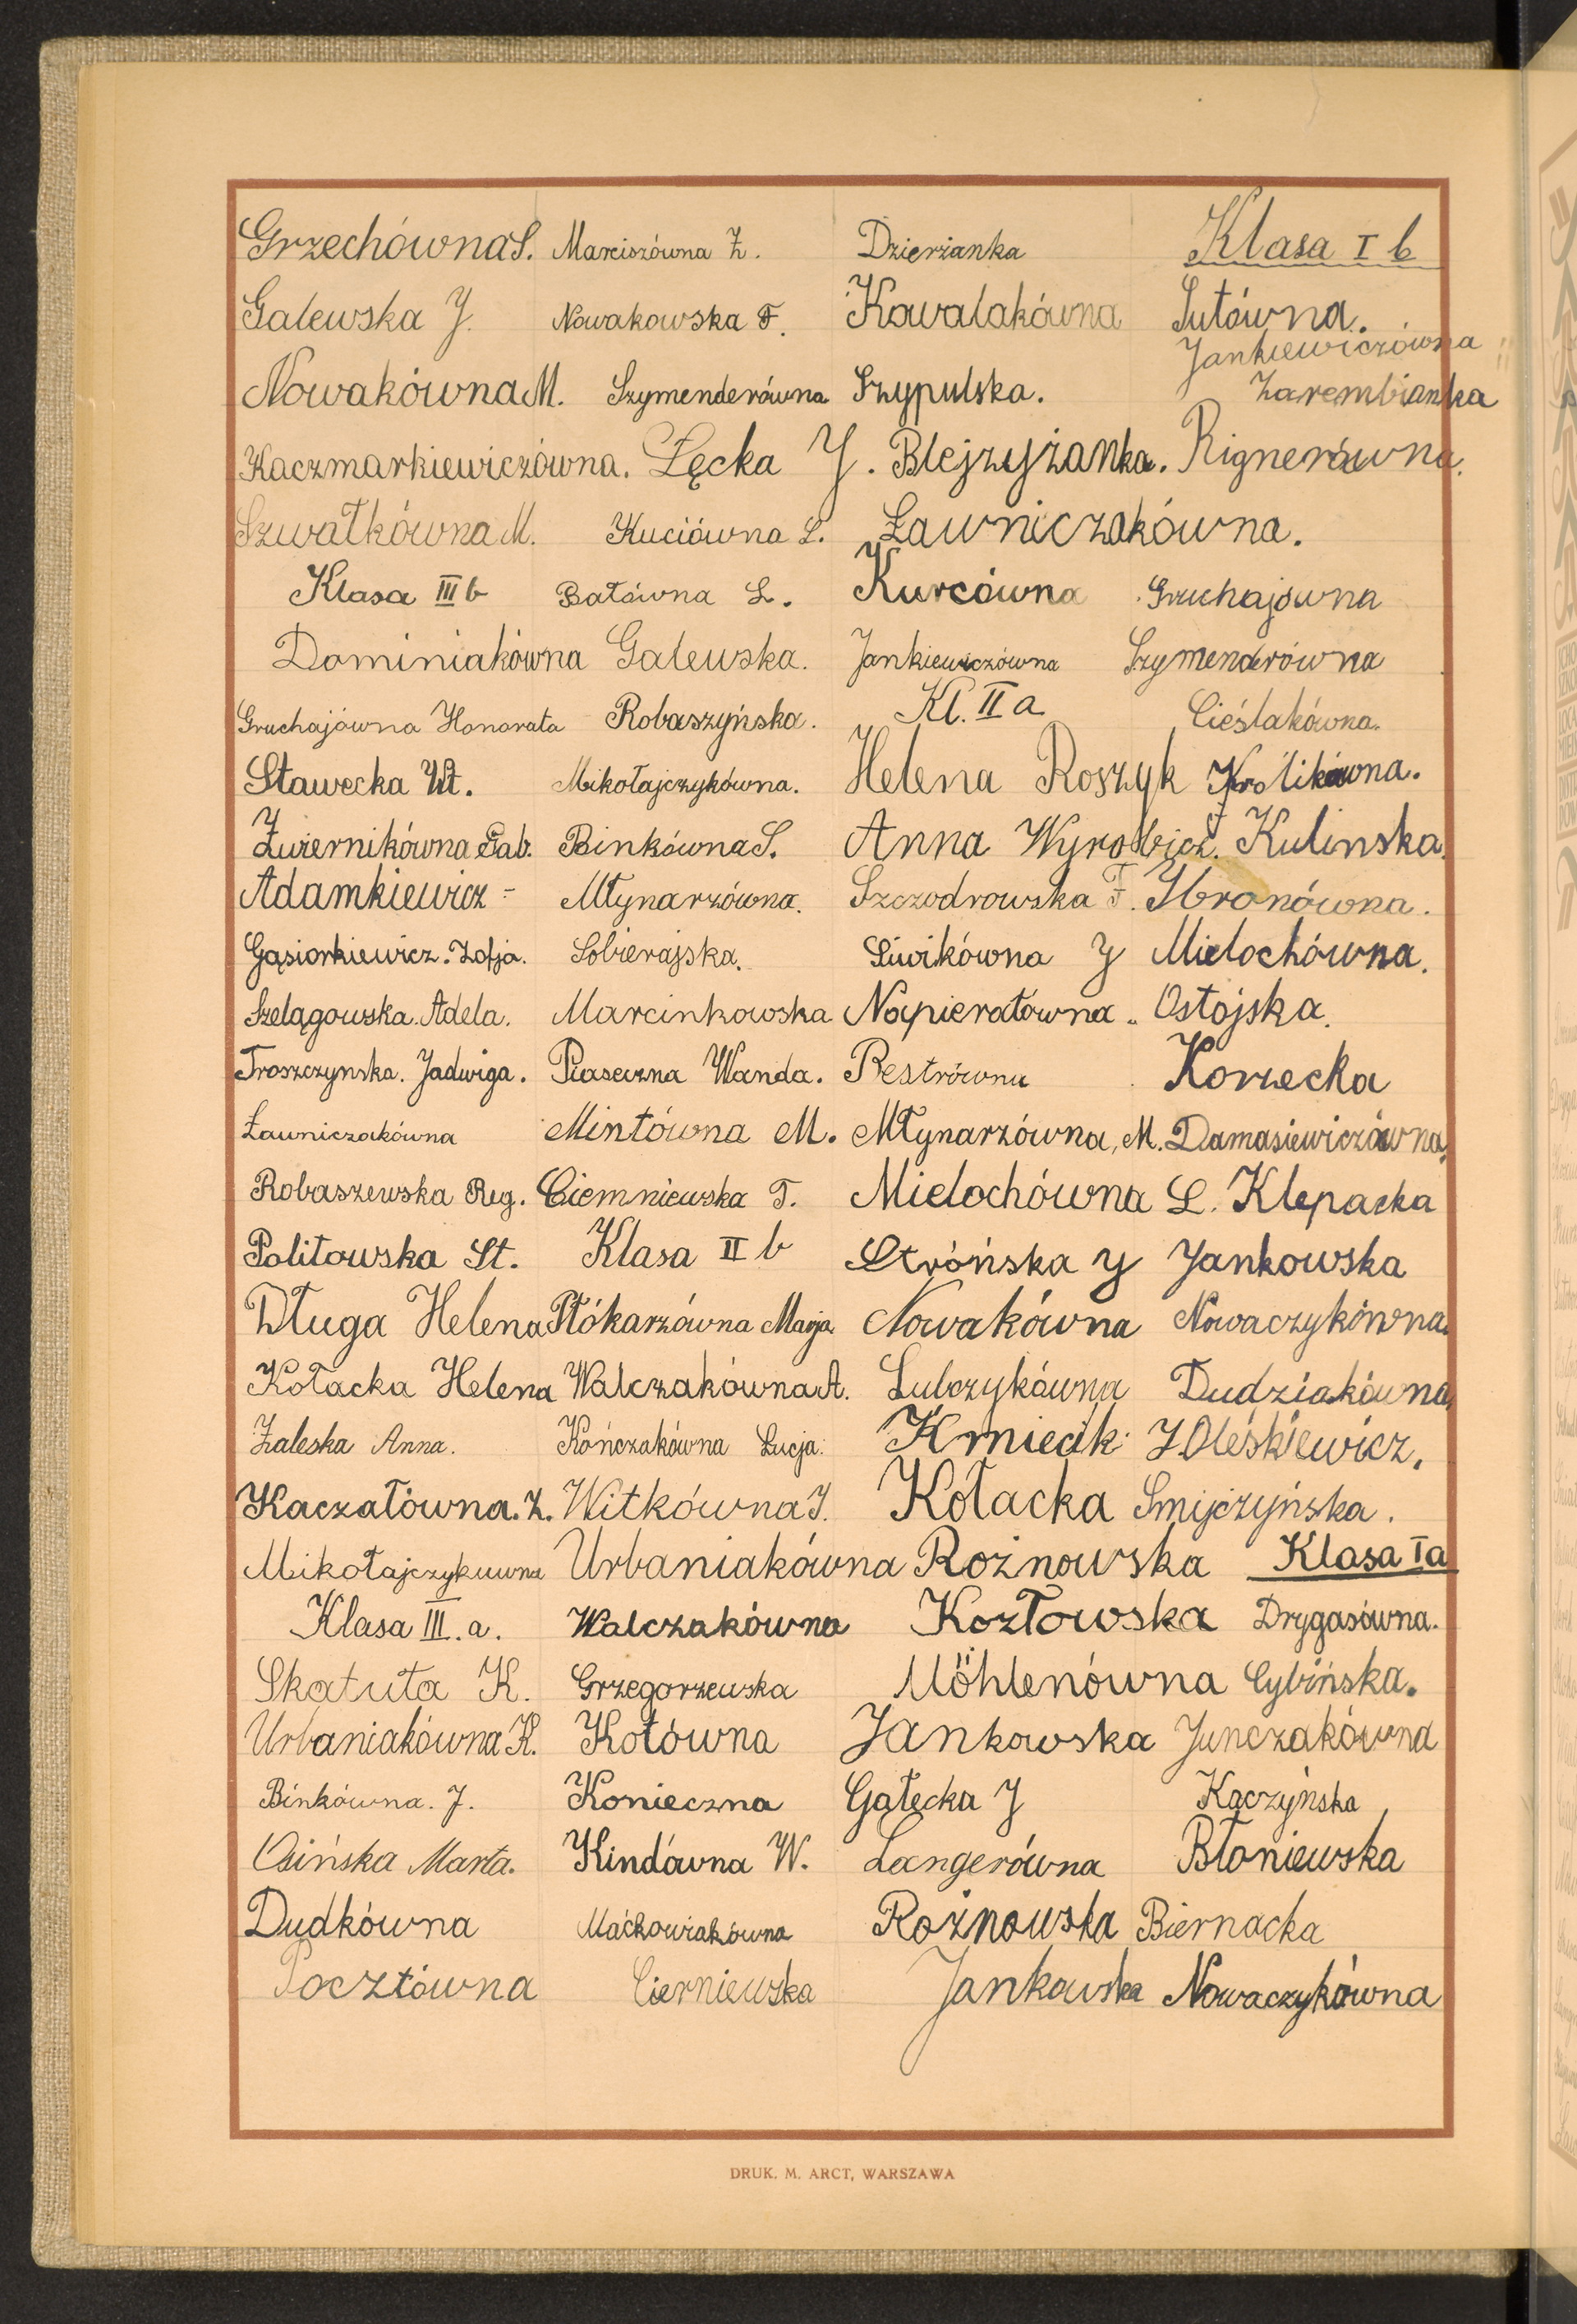 Grzechówna S. Marciszówna Z. Dzierżanka Klasa I b
Galewska J. Nowakowska F. Kowalakówna Sutówna.
Jankiewiczówna
Nowakówna M. Szymenderówna Szypulska. Zarembianka
Kaczmarkiewiczówna. Łęcka J. Blejzyżanka. Rignerówna.
Szwałkówna M. Kuciówna L. Ławniczakówna.
Klasa III b Batówna L. Kurcówna Gruchajówna
Dominiakówna Galewska. Jankiewiczówna Szymenderówna
Gruchajówna Honorata Robaszyńska. Kl. II a Cieślakówna.
Stawecka Wł. Mikołajczykówna. Helena Roszyk Królikówna.
Żwiernikówna Gab. Binkówna S. Anna Wyrobicz. Kulinska.
Adamkiewicz - Młynarzówna. Szczodrowska F. Ibronówna.
Gąsiorkiewicz. Zofja. Sobierajska. Siwikówna J Mielochówna.
Szelągowska. Adela. Marcinkowska Napierałówna. Ostojska.
Troszczynska. Jadwiga. Piaseczna Wanda. Restrówna Korzecka
Ławniczakówna Mintówna M. Młynarzówna, M. Damasiewiczówna,
Robaszewska Reg. Ciemniewska T. Mielochówna L. Klepacka
Politowska St. Klasa II b Strońska J Jankowska
Długa Helena Płókarzówna Marja. Nowakówna Nowaczykówna.
Kołacka Helena Walczakówna A. Lubczykówna Dudziakówna,
Zaleska Anna. Kończakówna Łucja. Kmiecik J Oleśkiewicz.
Kaczałówna. Z. Witkówna J. Kołacka Smijczyńska.
Mikołajczykuwna Urbaniakówna Rożnowska Klasa I a
Klasa III. a. Walczakówna Kozłowska Drygasówna.
Skatuła K. Grzegorzewska Möhlenówna Cybińska.
Urbaniakówna K. Kotówna Jankowska Junczakówna
Binkówna. J. Konieczna Gałecka J Kaczyńska
Osińska Marta. Kindówna W. Langerówna Błoniewska
Dudkówna Maćkowiakówna Rożnowska Biernacka
Pocztówna Cierniewska Jankowska Nowaczykówna
DRUK. M. ARCT, WARSZAWA